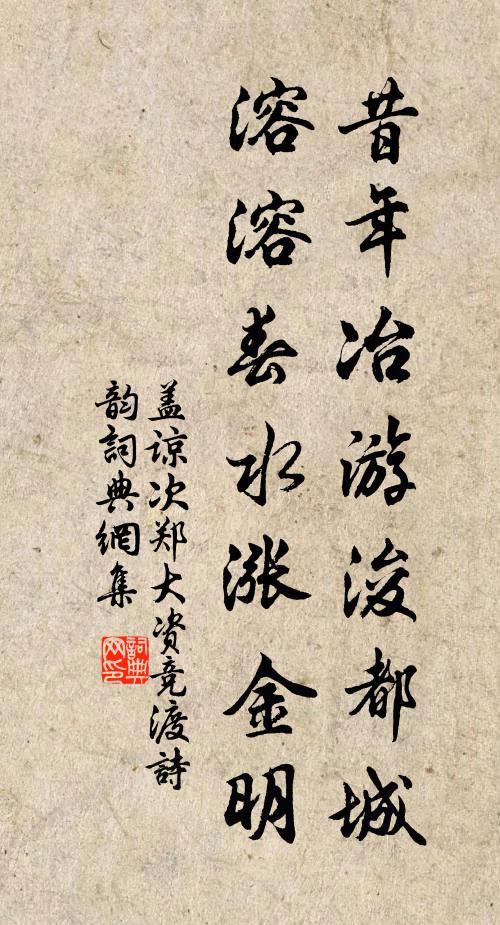 昔年冶游浚都城
溶溶春水漲金明
盖谅次郑大资竞渡詩
韵詞典網集
詞典
网印